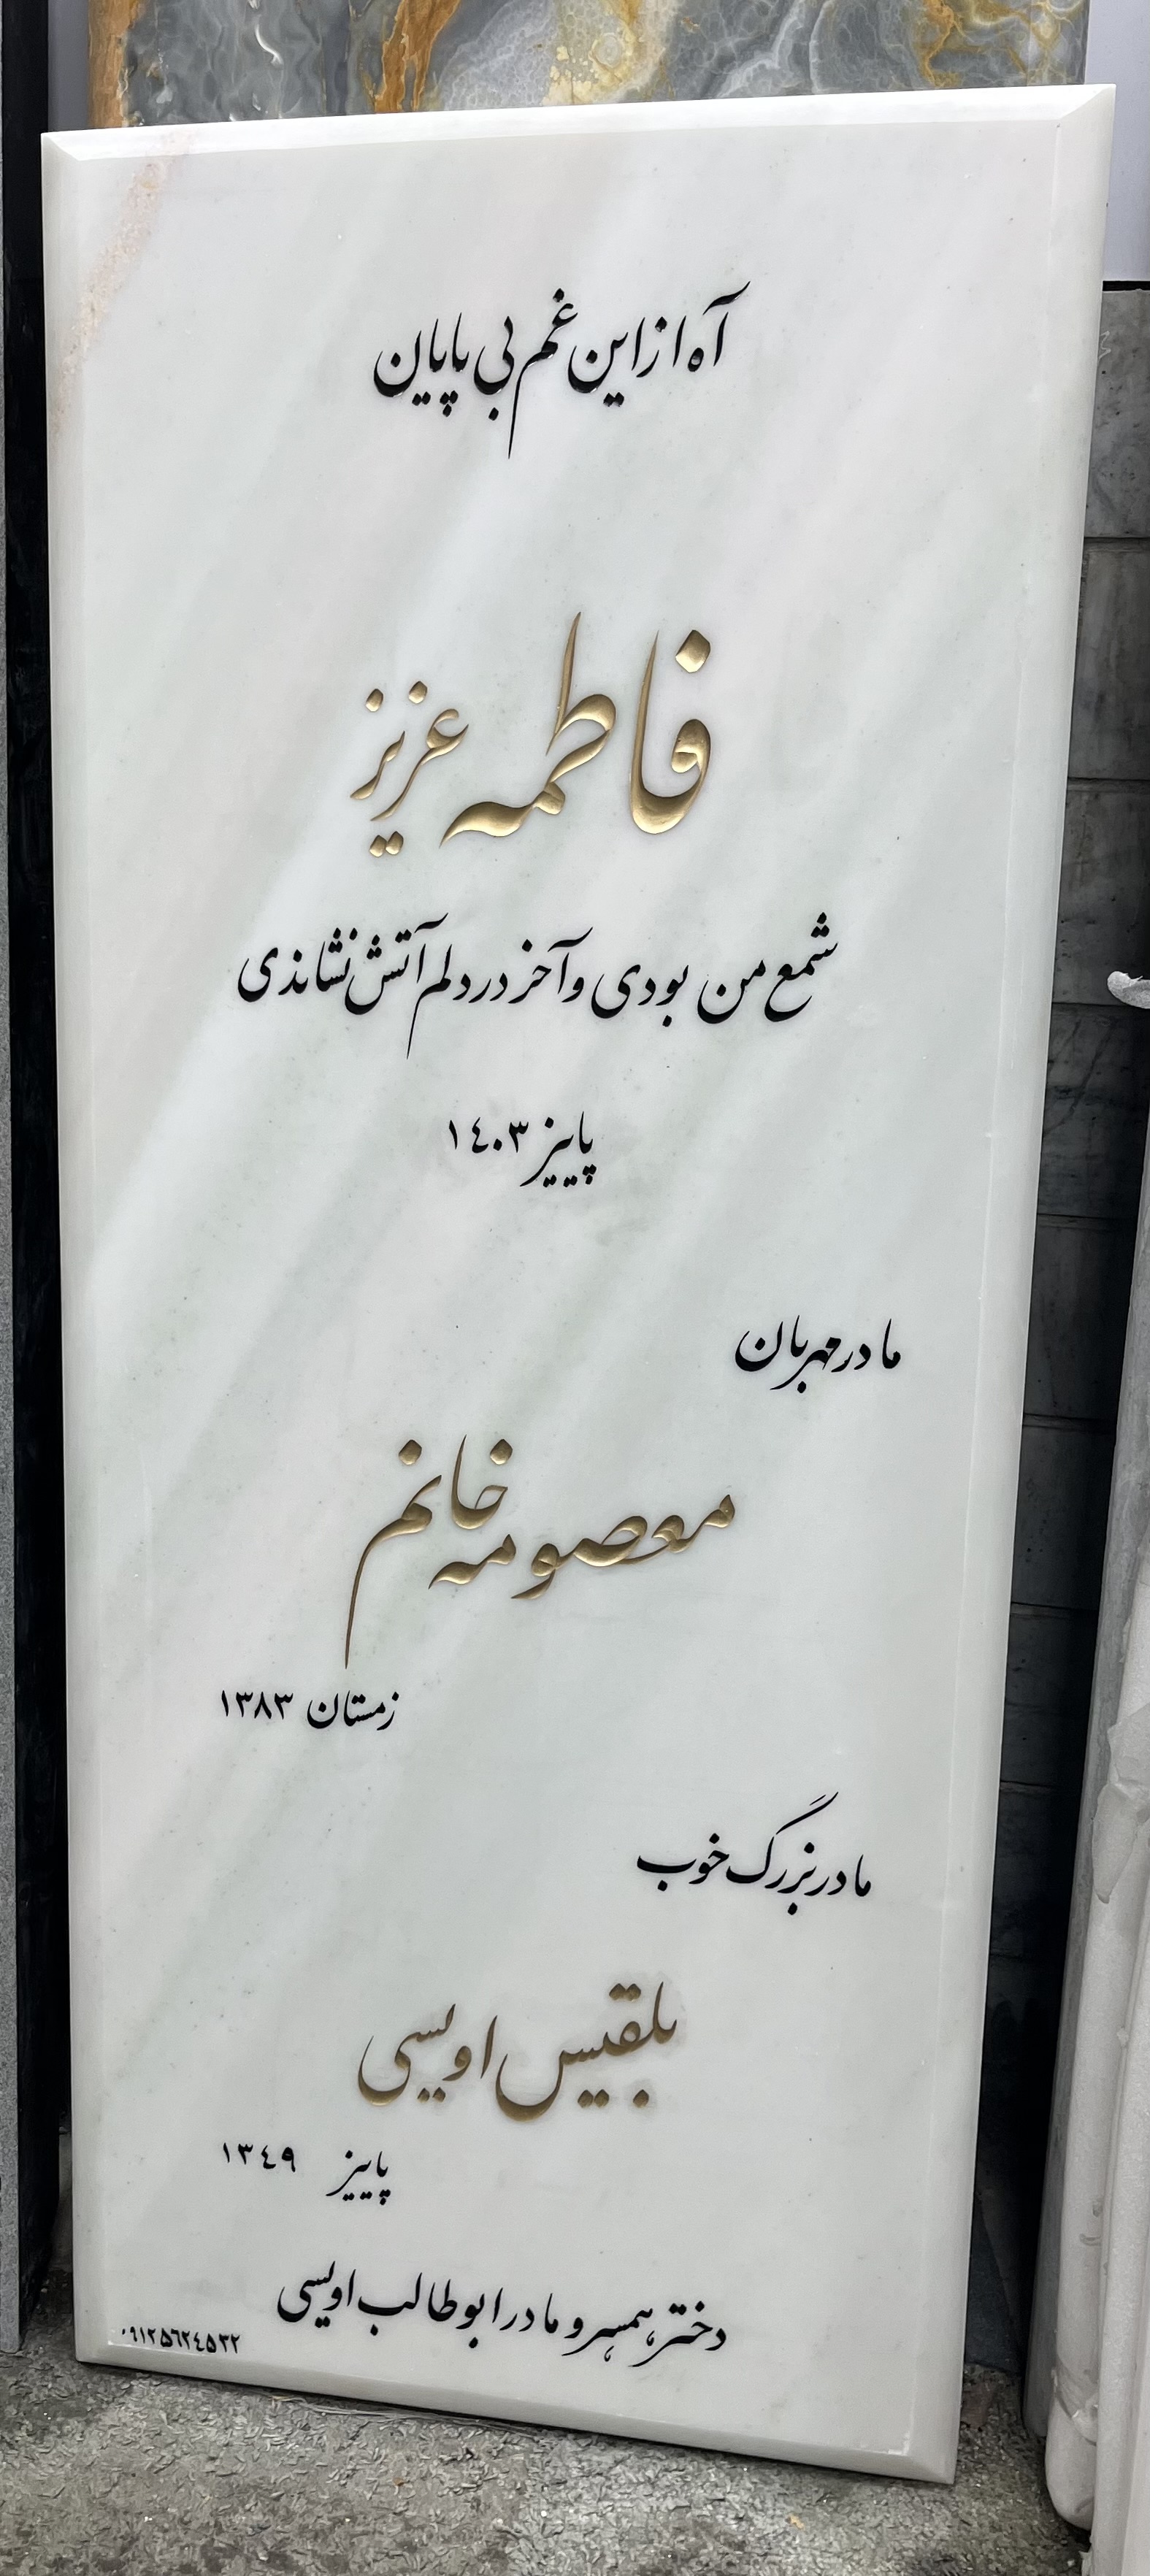 آه از این غم بی پایان
فاطمه عزیز
شمع من بودی و آخر در دلم آتش نشاندی
پاییز ۱۴۰۳
مادر مهربان
معصومه خانم
زمستان ۱۳۸۳
مادربزرگ خوب
بلقیس اویسی
پاییز ۱۳۴۹
دختر، همسر و مادر ابوطالب اویسی
۰۹۱۲۵۶۲۴۵۳۲